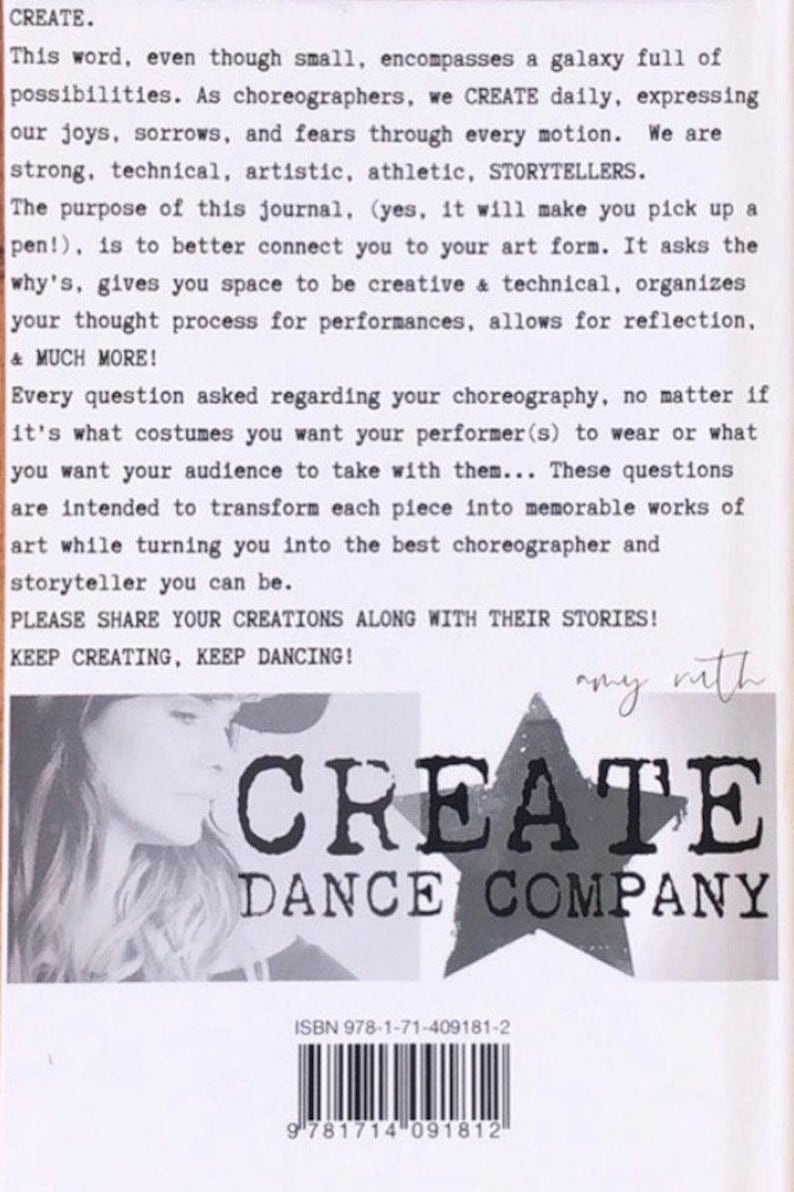 CREATE.
This word, even though small, encompasses a galaxy full of
possibilities. As choreographers, we CREATE daily, expressing
our joys, sorrows, and fears through every motion.  We are
strong, technical, artistic, athletic, STORYTELLERS.
The purpose of this journal, (yes, it will make you pick up a
pen!), is to better connect you to your art form. It asks the
why's, gives you space to be creative & technical, organizes
your thought process for performances, allows for reflection,
& MUCH MORE!
Every question asked regarding your choreography, no matter if
it's what costumes you want your performer(s) to wear or what
you want your audience to take with them... These questions
are intended to transform each piece into memorable works of
art while turning you into the best choreographer and
storyteller you can be.
PLEASE SHARE YOUR CREATIONS ALONG WITH THEIR STORIES!
KEEP CREATING, KEEP DANCING!
amy ruth
CREATE
DANCE COMPANY
ISBN 978-1-71-409181-2
9 781714 091812